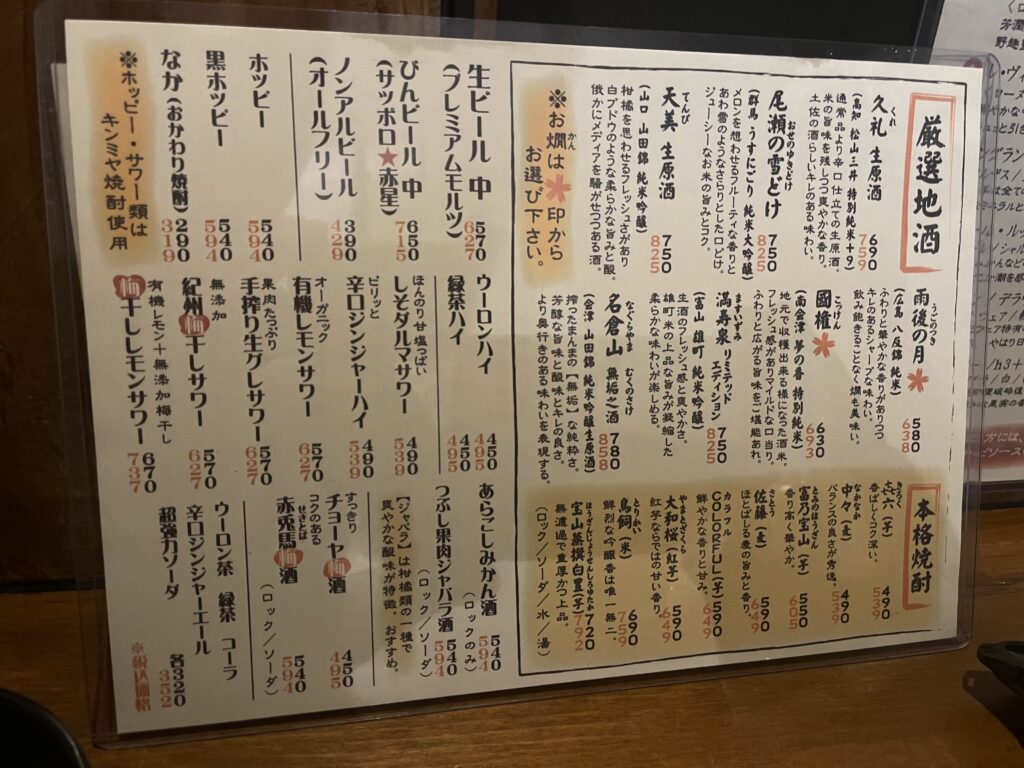 厳選地酒
久礼 生原酒
くれ
690
759
(高知 松山三井 特別純米+9)
通常品より辛口仕立ての生原酒。
米の旨味を残しつつ爽やかな香り。
土佐の酒らしいキレのある味わい。
尾瀬の雪どけ
おぜのゆきどけ
750
825
(群馬 うすにごり 純米大吟醸)
メロンを想わせるフルーティな香りと
あわ雪のようなさらりとした口どけ。
ジューシーなお米の旨みとコク。
天美 生原酒
てんび
750
825
(山口 山田錦 純米吟醸)
柑橘を思わせるフレッシュさがあり
白ブドウのような柔らかな旨みと酸。
俄かにメディアを騒がせつつある酒。
※お燗は EPから
かん
お選び下さい。
雨後の月
うごのつき
580
638
(広島 八反錦 純米)
ふわりと華やかな香りがありつつ
キレのあるシャープな味わい。
飲み飽きることなく燗も美味い。
國権
こっけん
630
693
(南会津 夢の香 特別純米)
地元で収穫出来る様になった酒米。
フレッシュ感がありマイルドな口当り。
ふわりと広がる旨味をご堪能あれ。
満寿泉 リミテッドエディション
ますいずみ
750
825
(富山 雄町 純米吟醸)
生酒のフレッシュ感と爽やかさ。
雄町米の上品な旨みが凝縮した
柔らかな味わいが楽しめる。
名倉山 無垢之酒
なぐらやま むくのさけ
780
858
(会津 山田錦 純米吟醸生原酒)
搾ったまんまの【無垢】な純粋さ。
芳醇な旨味と酸味とキレの良さ。
より奥行きのある味わいを表現する。
本格焼酎
㐂六(芋)
きろく
490
539
香ばしくコク深い。
中々(麦)
なかなか
490
539
バランスの良さが秀逸。
富乃宝山(芋)
とみのほうざん
550
605
香り高く華やか。
佐藤(麦)
さとう
590
649
ほとばしる麦の旨みと香り。
COLORFUL(芋)
カラフル
590
649
鮮やかな香りと甘み。
大和桜(紅芋)
やまとざくら
590
649
紅芋ならではの甘い香り。
鳥飼(米)
とりかい
690
759
鮮烈な吟醸香は唯一無二。
宝山蒸撰白豊(芋)
ほうざんじょうせんしろゆたか
720
792
無濾過で重厚かつ上品。
(ロック/ソーダ/水/湯)
生ビール 中
570
(プレミアムモルツ)
627
びんビール 中
650
(サッポロ★赤星)
715
ノンアルビール
390
(オールフリー)
429
ホッピー
540
594
黒ホッピー
540
594
なか(おかわり焼酎)
290
319
※ホッピー・サワー類は
キンミヤ焼酎使用
ウーロンハイ
450
495
緑茶ハイ
450
495
ほんのり甘塩っぱい
しそダルマサワー
490
539
ピリッと
辛口ジンジャーハイ
490
539
オーガニック
有機レモンサワー
570
627
果肉たっぷり
手搾り生グレサワー
570
627
無添加
紀州梅干しサワー
570
627
有機レモン+無添加梅干し
梅干しレモンサワー
670
737
あらごしみかん酒
540
594
(ロックのみ)
つぶし果肉ジャバラ酒
540
594
(ロック/ソーダ)
【ジャバラ】は柑橘類の一種で
爽やかな酸味が特徴。おすすめ。
すっきり
チョーヤ梅酒
450
495
コクのある
赤兎馬梅酒
せきとば
540
594
(ロック/ソーダ)
ウーロン茶 緑茶 コーラ
辛口ジンジャーエール
超強力ソーダ
各320
352
※税込価格